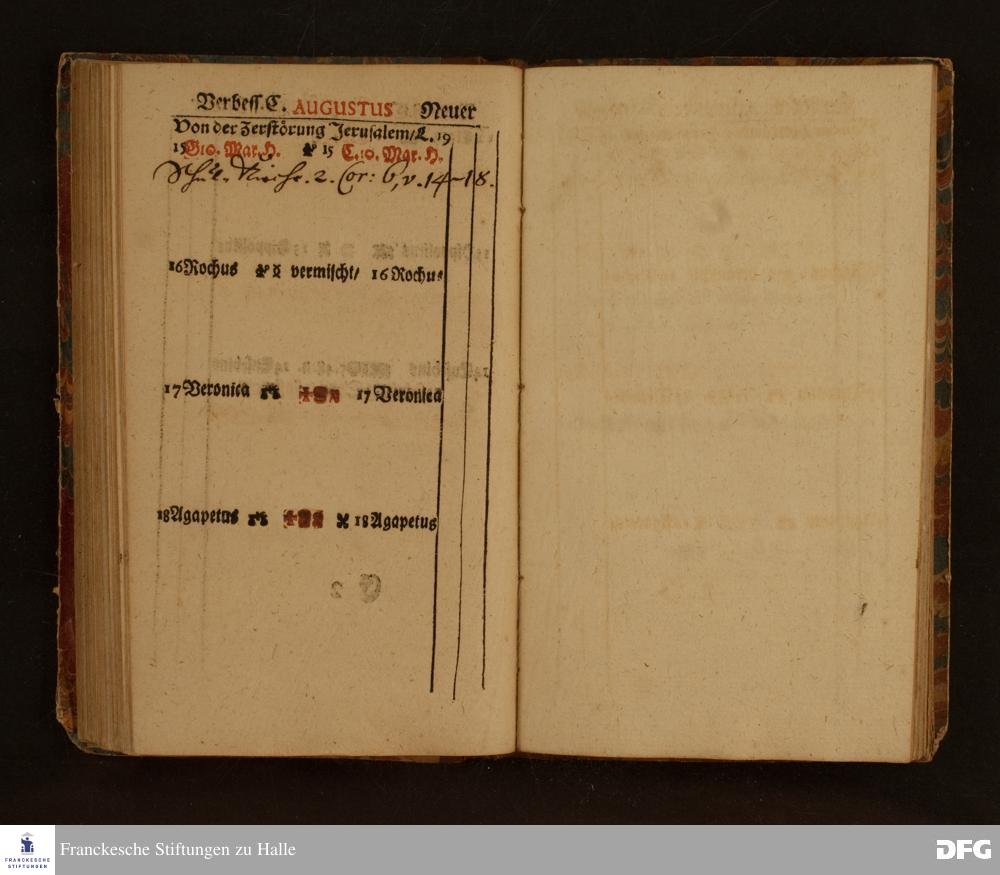 Verbess. C. AUGUSTUS Neuer
Von der Zerstörung Jerusalem/L. 19
15 G10. Mar. H. 15 C.10. Mar. H.
2. Cor: 6, v. 14-18.
16 Rochus vermischt/ 16 Rochus
17 Veronica 17 Veronica
18 Agapetus 18 Agapetus
G 2
FRANCKESCHE
STIFTUNGEN
Franckesche Stiftungen zu Halle
DFG